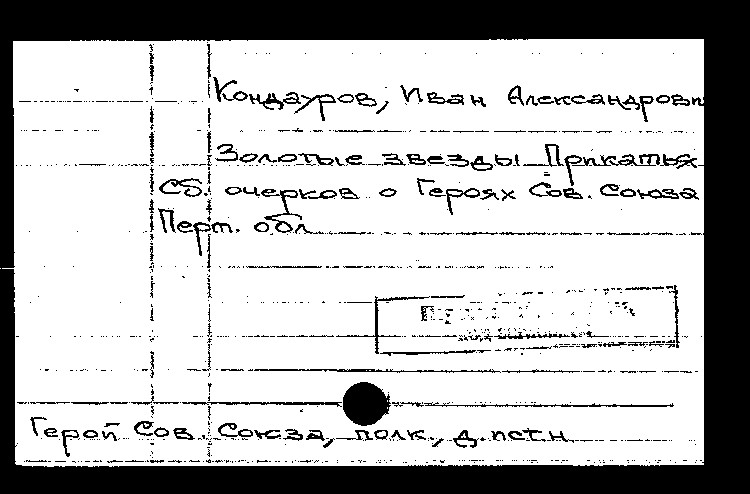 Кондауров, Иван Александрови
Золотые звезды Прикамья
Сб. очерков о Героях Сов. Союза
Перм. обл
Герой Сов. Союза, полк., д.ист.н